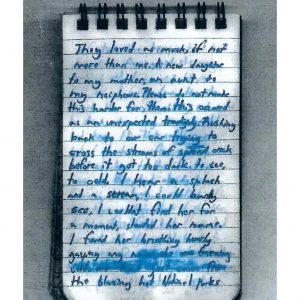 They loved as much, if not
more than me. A new daughter
to my mother, an aunt to
my nephews. Please do not make
this harder for than this occured
as an unexpected tragedy. Rushing
back to our car trying to
cross the stream of creek
before it got too dark to see,
to odd. I hear a splash
and a scream, I could barely
see. I couldn't find her for
a moment, shouted her name.
I found her breathing heavily
gasping my was freezing
from
the blazing hot National parks